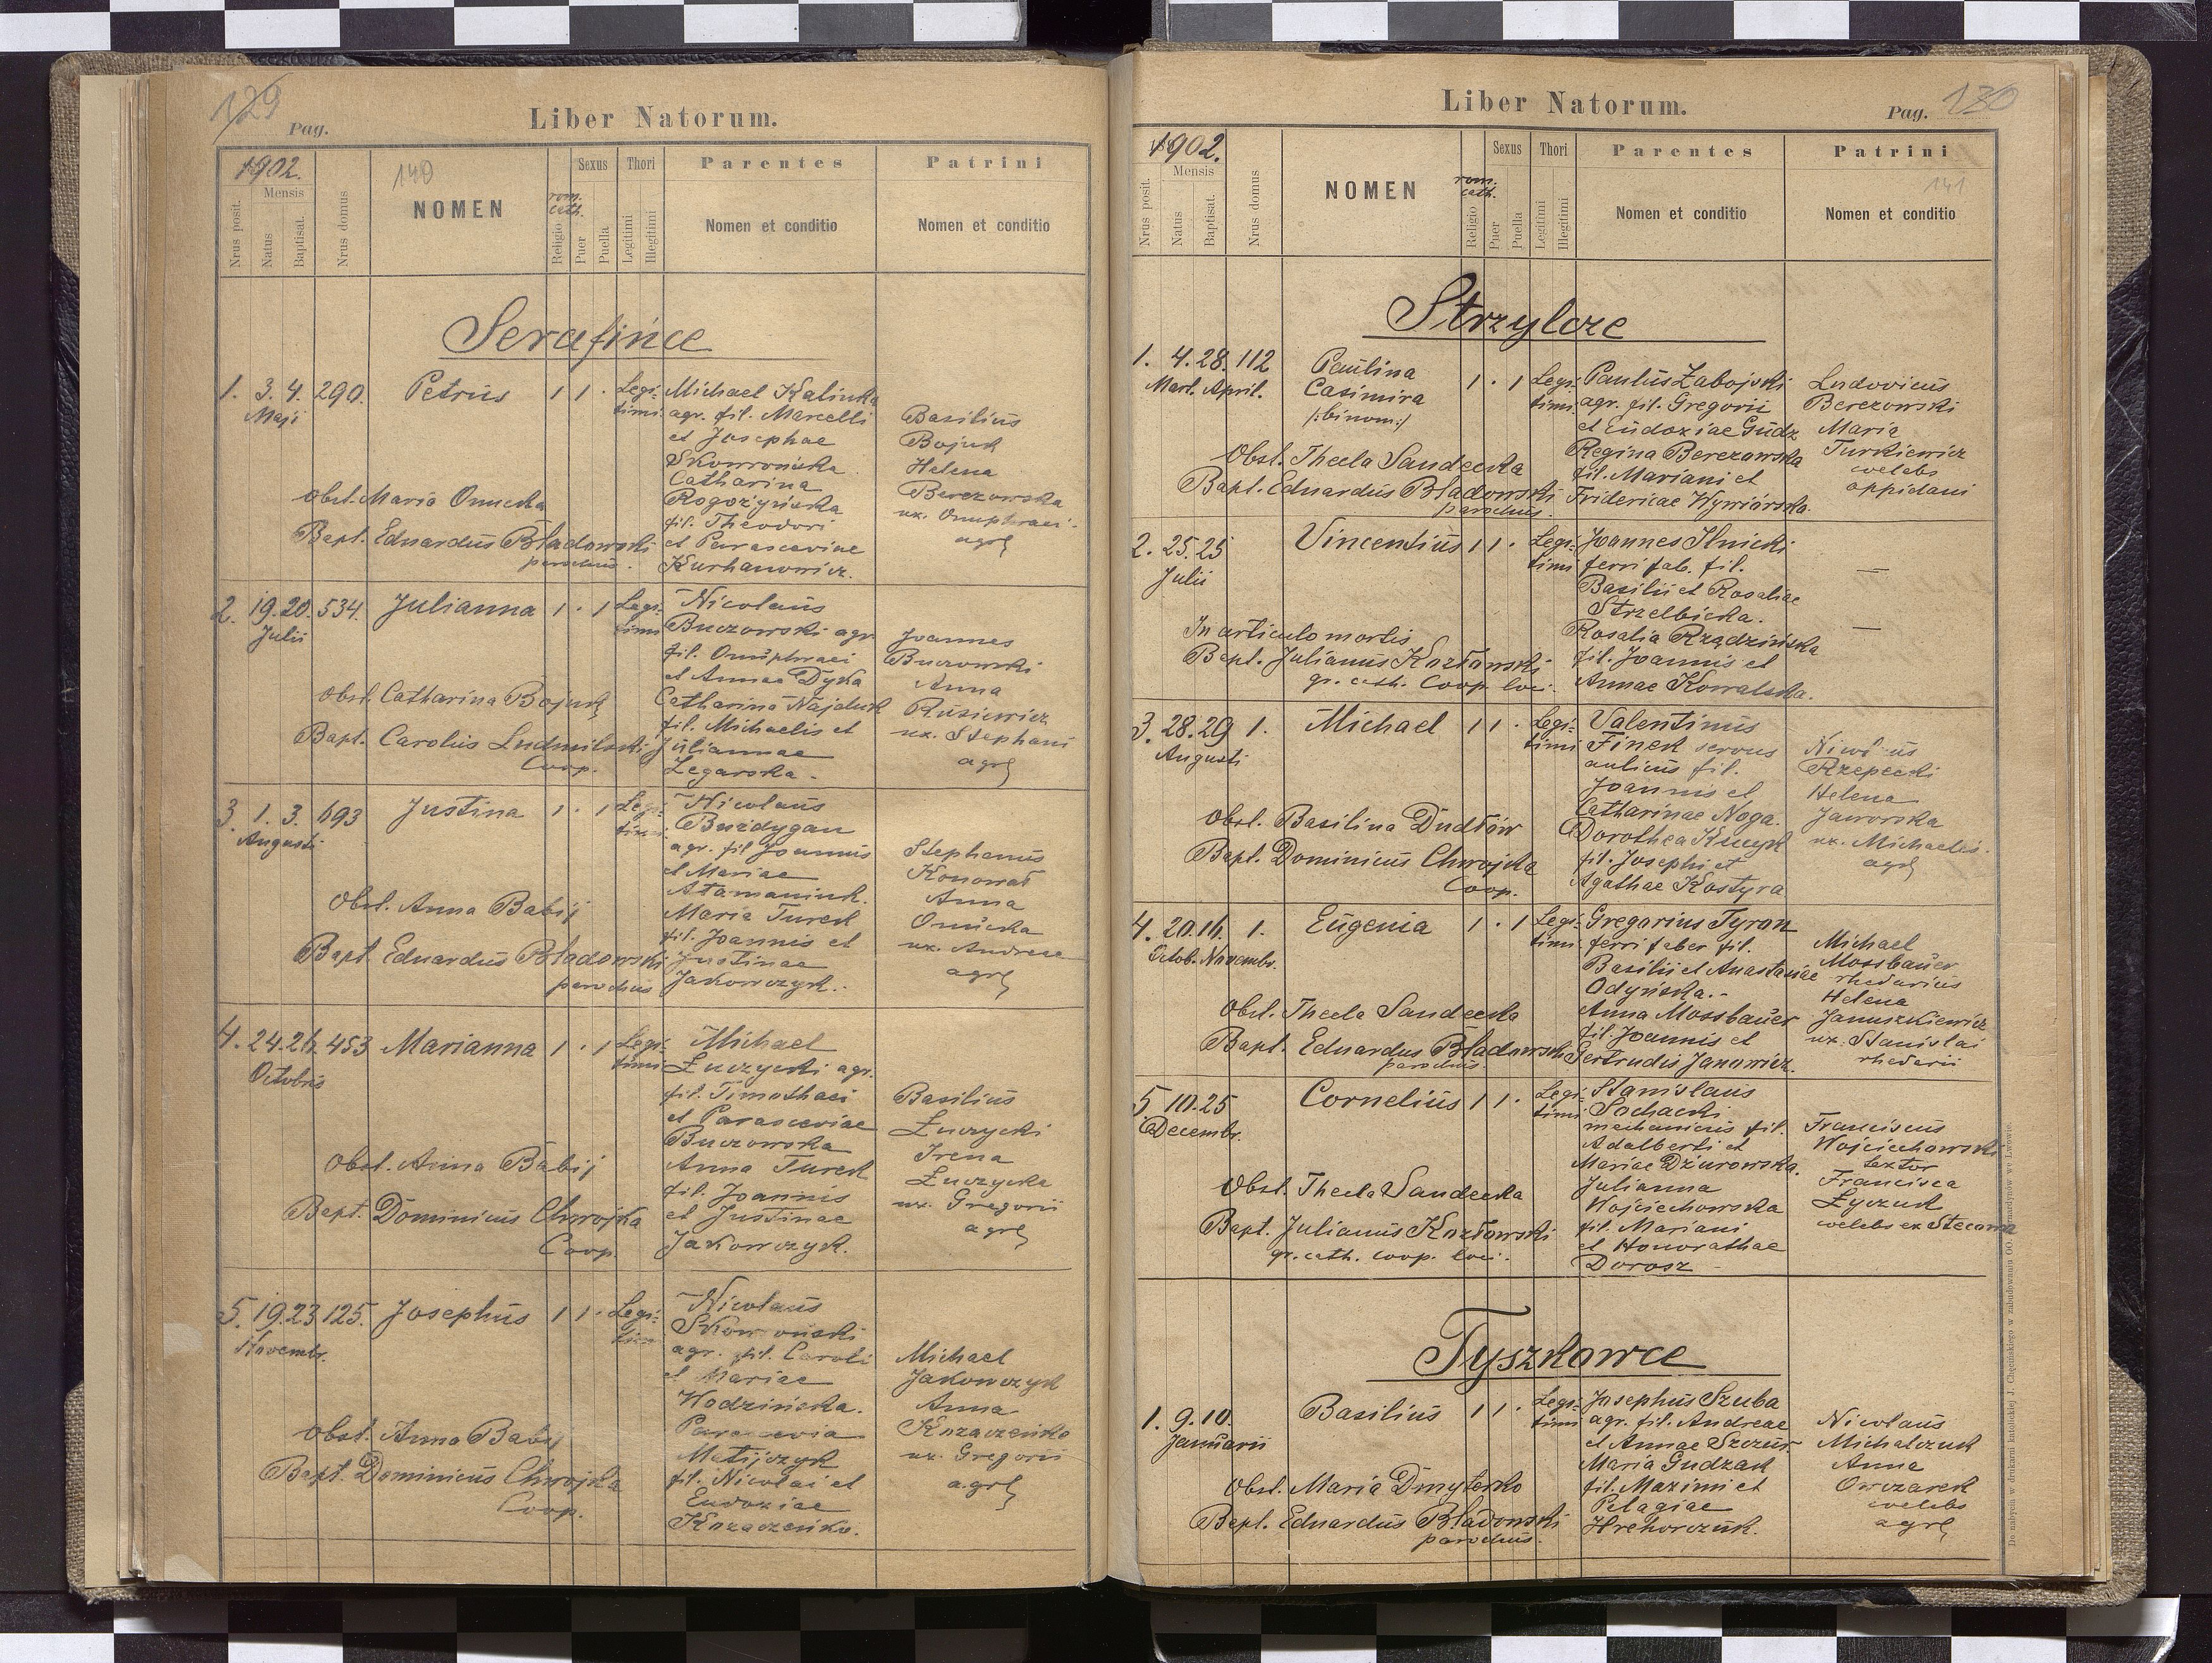 129
Pag.
Liber Natorum.
1902.
Mensis
Nrus posit.
Natus
Baptisat.
Nrus domus
140
NOMEN
rom. cath.
Religio
Sexus
Puer
Puella
Thori
Legitimi
Illegitimi
Parentes
Nomen et conditio
Patrini
Nomen et conditio
Serafińce
1. 3. 4. 290. Petrus 1 1 ·
Maji
Legitimi
Michael Kalinka
agr. fil. Marcelli
et Josephae
Skowrońska.
Catharina
Rogożyńska
fil. Theodori
et Parasceviae
Kurhanowicz.
Basilius
Bojuk
Helena
Berezowska
ux. Onuphraei.
agrl
Obst. Maria Onucka
Bapt. Eduardus Bładowski
parochus.
2. 19. 20. 534. Julianna 1 · 1
Julii
Legitimi
Nicolaus
Buczowski agr.
fil. Onuphraei
et Annae Dyka
Catharina Najduk
fil. Michaelis et
Juliannae
Zegarska.
Joannes
Buczowski
Anna
Rusiewicz
ux. Stephani
agrl
Obst. Catharina Bojuk
Bapt. Carolus Ludmilski
Coop.
3. 1. 3. 693 Justina 1 · 1
Augusti
Legitimi
Nicolaus
Buzdygan
agr. fil. Joannis
et Mariae
Atamaniuk.
Maria Turek
fil. Joannis et
Justinae
Jakowczyk.
Stephanus
Konował
Anna
Onucka
ux. Andreae
agrl
Obst. Anna Babij
Bapt. Eduardus Bładowski
parochus
4. 24. 26. 453 Marianna 1 · 1
Octobris
Legitimi
Michael
Łuczycki agr.
fil. Timothaei
et Parasceviae
Buczowska
Anna Turek
fil. Joannis
et Justinae
Jakowczyk.
Basilius
Łuczycki
Irena
Łuczycka
ux. Gregorii
agrl
Obst. Anna Babij
Bapt. Dominicus Chwojka
Coop.
5. 19. 23. 125. Josephus 1 1 ·
Novembr.
Legitimi
Nicolaus
Skowroński
agr. fil. Caroli
et Mariae
Wodzińska.
Parascevia
Matijczyk
fil. Nicolai et
Eudoxiae
Kozaczenko.
Michael
Jakowczyk
Anna
Kozaczenko
ux. Gregorii
agrl
Obst. Anna Babij
Bapt. Dominicus Chwojka
Coop.
Liber Natorum.
Pag. 130
1902.
Mensis
Nrus posit.
Natus
Baptisat.
Nrus domus
NOMEN
rom. cath.
Religio
Sexus
Puer
Puella
Thori
Legitimi
Illegitimi
Parentes
Nomen et conditio
Patrini
141
Nomen et conditio
Strzylcze
1. 4. 28. 112
Mart. April.
Paulina
Casimira
/:binom:/
1 · 1
Legitimi
Paulus Zabojski
agr. fil. Gregorii
et Eudoxiae Gudz
Regina Berezowska
fil. Mariani et
Fridericae Wywiórska.
Ludovicus
Berezowski
Maria
Turkiewicz
coelebs
oppidani
Obst. Thecla Sandecka
Bapt. Eduardus Bładowski
parochus.
2. 25. 25 Vincentius 1 1 ·
Julii
Legitimi
Joannes Ilnicki
ferri fab. fil.
Basilii et Rosaliae
Strzelbicka.
Rosalia Rządzińska
fil. Joannis et
Annae Kowalska.
In articulo mortis
Bapt. Julianus Kozłowski
gr. cath. Coop. loci.
3. 28. 29 1. Michael 1 1 ·
Augusti
Legitimi
Valentinus
Finek servus
aulicus fil.
Joannis et
Catharinae Noga.
Dorothea Kmyk
fil. Josephi et
Agathae Kostyra
Nicolaus
Rzepecki
Helena
Jaworska
ux. Michaelis.
agrl
Obst. Basilina Dudłów
Bapt. Dominicus Chwojka
Coop.
4. 20. 16. 1. Eugenia 1 · 1
Octob. Novembr.
Legitimi
Gregorius Tyran
ferri faber fil.
Basilii et Anastasiae
Odyńska.
Anna Mossbauer
fil. Joannis et
Gertrudis Janowicz.
Michael
Mossbauer
rhedarius
Helena
Januszkiewicz
ux. Stanislai
rhedarii
Obst. Thecla Sandecka
Bapt. Eduardus Bładowski
parochus.
5. 10. 25 Cornelius 1 1 ·
Decembr.
Legitimi
Stanislaus
Sochacki
mechanicus fil.
Adalberti et
Mariae Dżurowska.
Julianna
Wojciechowska
fil. Mariani
et Honorathae
Dorosz
Franciscus
Wojciechowski
textor
Francisca
Łyczuk
coelebs ex Stecowa
Obst. Thecla Sandecka
Bapt. Julianus Kozłowski
gr. cath. coop. loci.
Tyszkowce
1. 9. 10. Basilius 1 1 ·
Januarii
Legitimi
Josephus Szuba
agr. fil. Andreae
et Annae Szczur
Maria Gudzak
fil. Maximi et
Pelagiae
Hrehorczuk.
Nicolaus
Michalczuk
Anna
Owczarek
coelebs
agrl
Obst. Maria Dmyterko
Bapt. Eduardus Bładowski
parochus.
Do nabycia w drukarni katolickiej J. Chęcińskiego w zabudowaniu OO. Bernardynów we Lwowie.